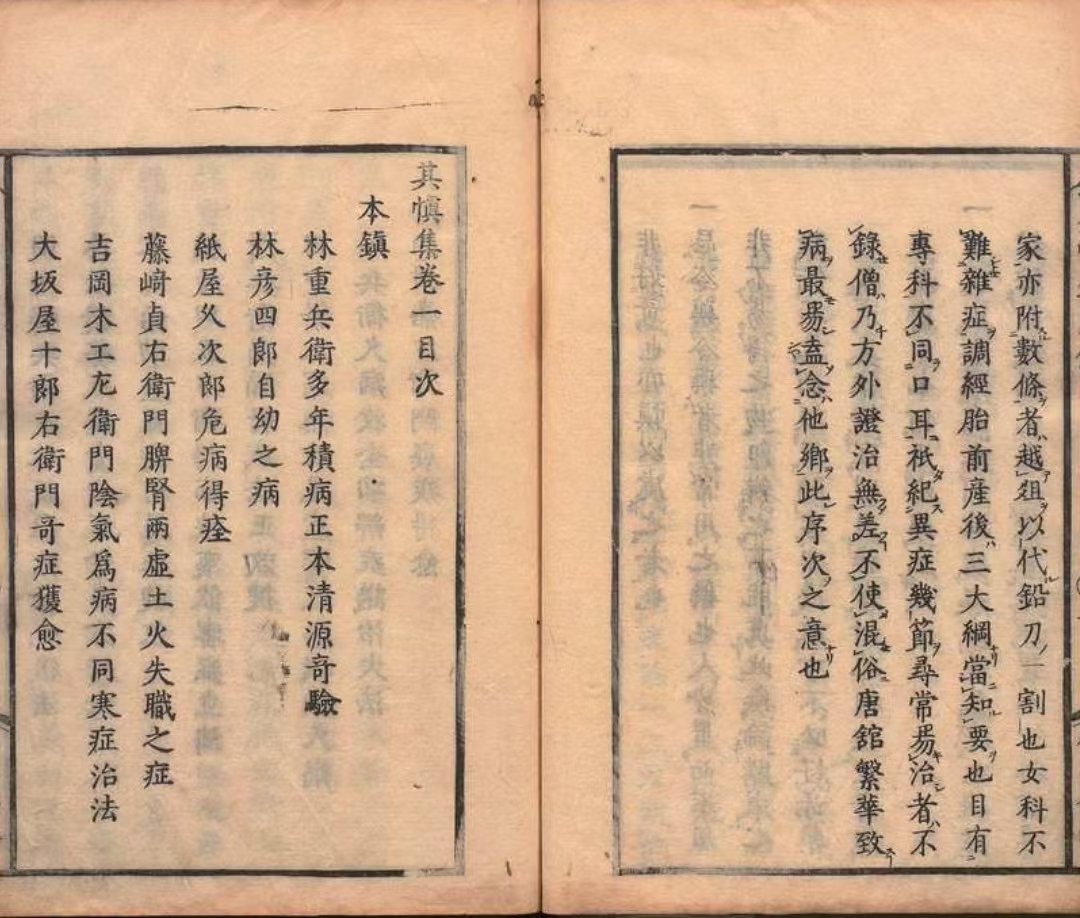 家亦附數條者越俎以代鉛刀一割也女科不
一難雜症調經胎前產後三大綱當知要也目有
專科不同口耳祇紀異症幾節尋常易治者不
錄僧乃方外證治無差不使混俗唐舘繁華致
病最易盍念他鄉此序次之意也
其慎集卷一目次
本鎮
林重兵衛多年積病正本清源奇驗
林彦四郎自幼之病
紙屋久次郎危病得痊
藤﨑貞右衛門脾腎兩虛土火失職之症
吉岡木工左衛門陰氣爲病不同寒症治法
大坂屋十郎右衛門奇症獲愈